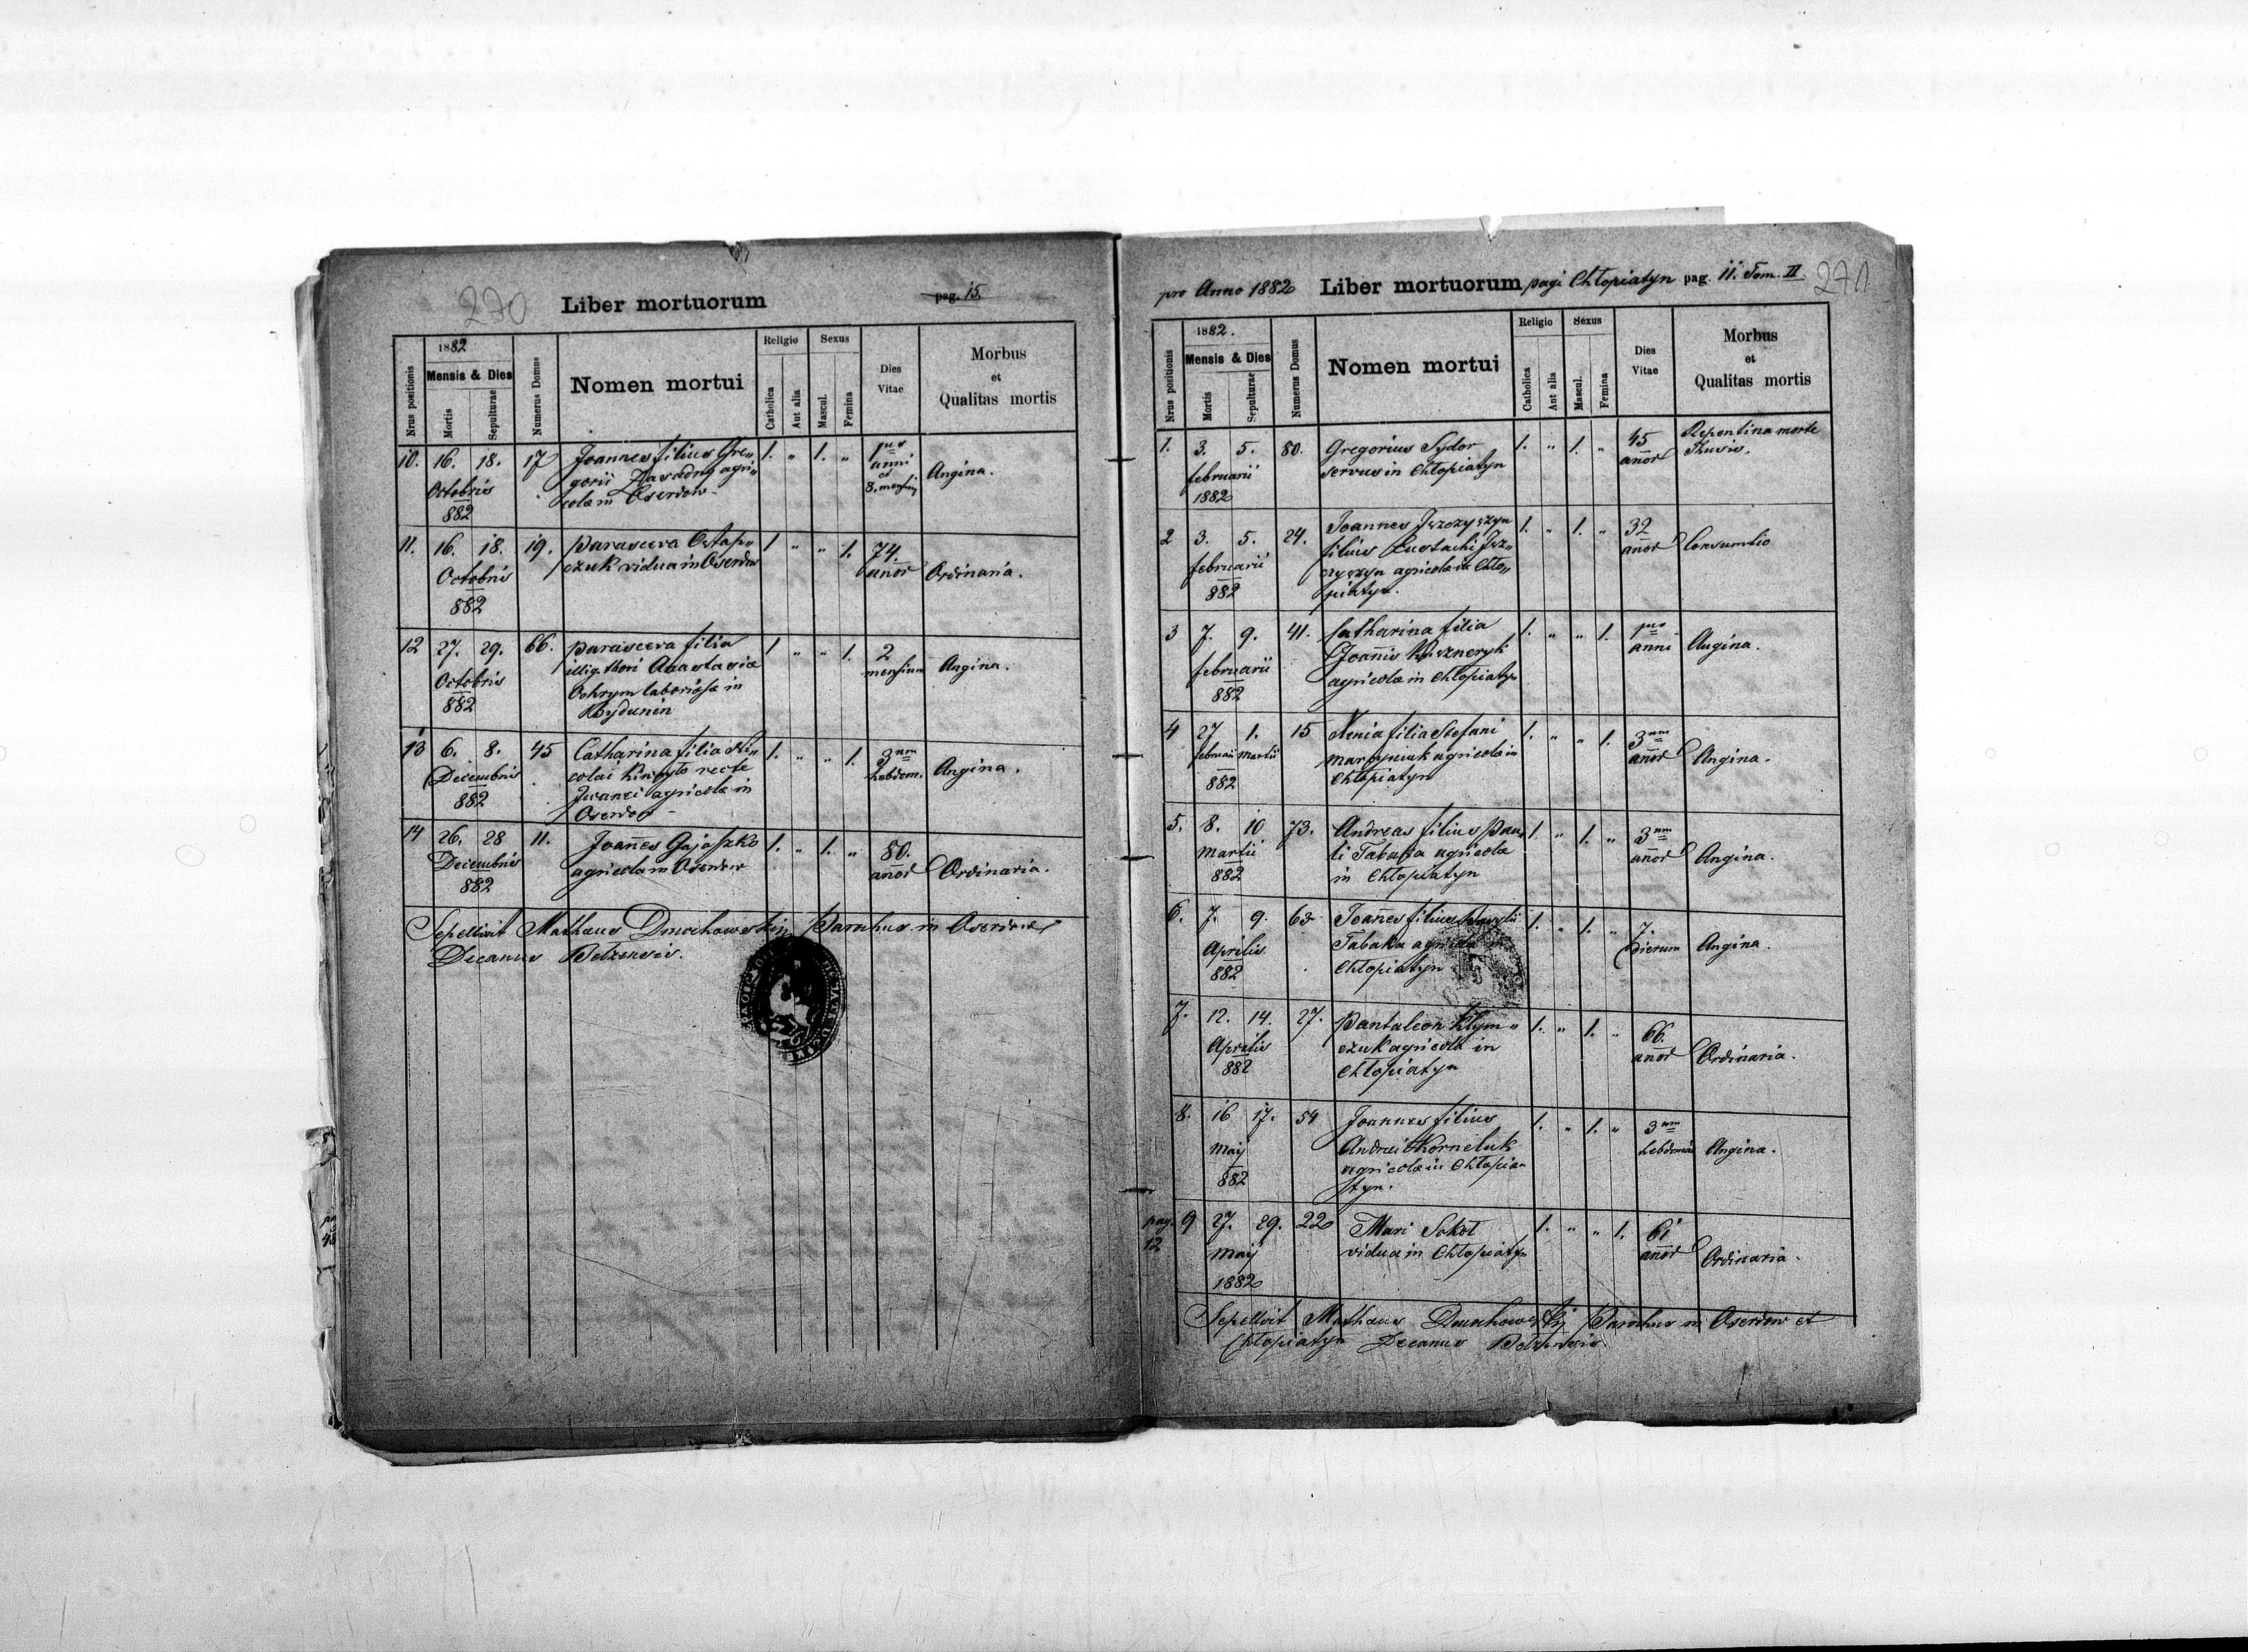 270
Liber mortuorum
pag. 15.
Nrus positionis
1882
Mensis & Dies
Mortis
Sepulturae
Numerus Domus
Nomen mortui
Religio
Catholica
Aut alia
Sexus
Mascul.
Femina
Dies
Vitae
Morbus
et
Qualitas mortis
10. 16. 18. 17 Joannes filius Gre„ 1. „ 1. „
Octobris gorii agri„ anni Angina.
882 colae in Oserdow et 8. mensium
11. 16. 18. 19. Parasceva Ostap„ 1 „ „ 1. 74.
Octobris czuk vidua in Oserdow anor Ordinaria.
882
12 27. 29. 66. Parasceva filia 1 „ „ 1. 2
Octobris illig. thori Anastasiae mensium Angina.
882 Ochrym laboriosae in
13 6. 8. 45 Catharina filia Ni„ 1. „ „ 1. 3
Decembris colai recte hebdom. Angina.
882 agricolae in
Oserdow
14 26. 28 11. Joannes 1. „ 1. „ 80.
Decembris agricola in Oserdow anor Ordinaria.
882
Sepelivit Mathaeus Dmochowskij Parochus in Oserdow
Decanus Belzensis.
pro Anno 1882 Liber mortuorum pagi Chłopiatyn pag. 11. Tom. II.
271
Nrus positionis
1882.
Mensis & Dies
Mortis
Sepulturae
Numerus Domus
Nomen mortui
Religio
Catholica
Aut alia
Sexus
Mascul.
Femina
Dies
Vitae
Morbus
et
Qualitas mortis
1. 3. 5. 80. Gregorius Sydor 1. „ 1. „ 45 Repentina morte
februarii servus in Chłopiatyn anor
1882
2 3. 5. 24. Joannes 1. „ 1. „ 32
februarii filius Eustachi anor Consumtio
882 agricolae in Chło„
piatyn.
3 7. 9. 41. Catharina filia 1. „ „ 1.
februarii Joannis anni Angina.
882 agricolae in Chłopiatyn
4 27 1. 15 Xenia filia Stefani 1. „ „ 1. 3
februarii Martii agricolae in anor Angina.
882 Chłopiatyn
5. 8. 10 73. Andreas filius Pau„ 1. „ 1. „ 3
Martii li Tabaka agricolae anor Angina.
882 in Chłopiatyn
6. 7. 9. 63 Joannes filius 1. „ 1. „ 7.
Aprilis Tabaka agricolae dierum Angina.
882 Chłopiatyn
7. 12. 14. 27. Pantaleon Klym„ 1. „ 1. „ 66.
Aprilis czuk agricola in anor Ordinaria.
882 Chłopiatyn
8. 16 17. 54 Joannes filius 1. „ 1. „ 3
Maij Andrei Korneluk Angina.
882 agricolae in Chłopia„
tyn.
pag. 12
9 27. 29. 22 Mari Sokol 1. „ „ 1. 61
Maij vidua in Chłopiatyn anor Ordinaria.
1882
Sepelivit Mathaeus Dmochowskij Parochus in Oserdow et
Chłopiatyn Decanus Belzensis.